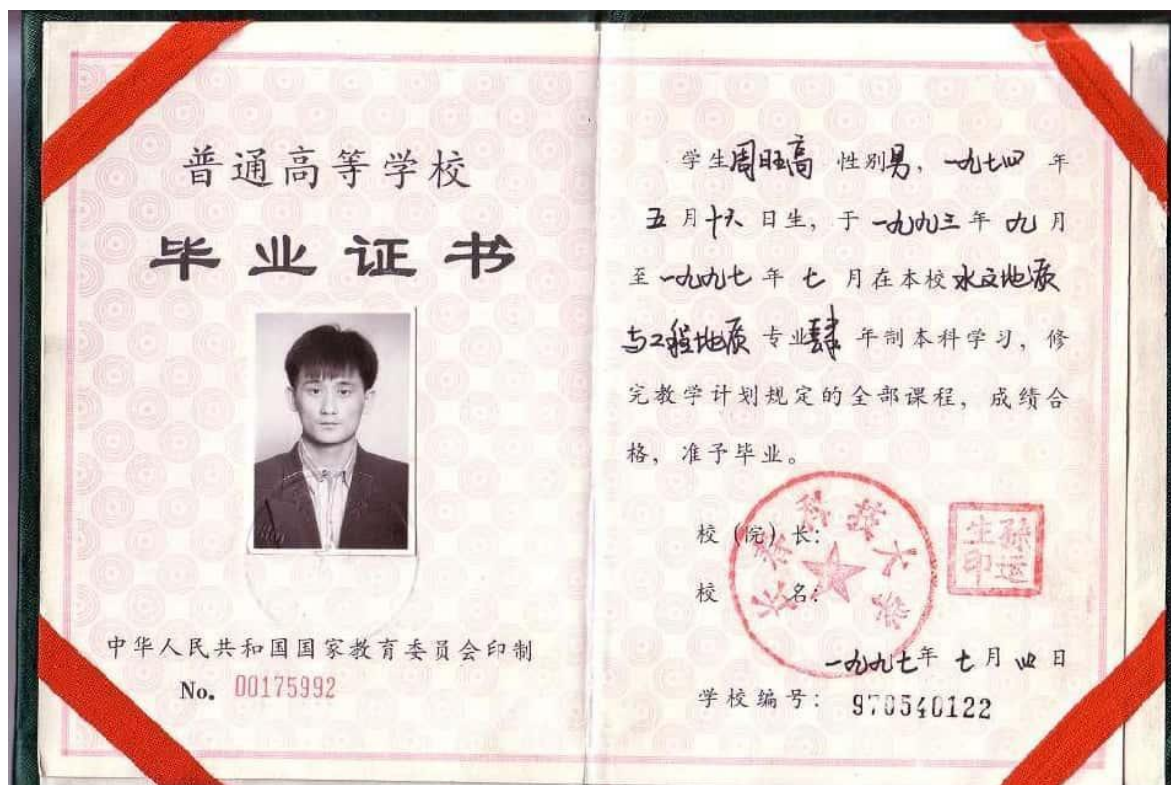 普通高等学校
毕业证书
中华人民共和国国家教育委员会印制
No. 00175992
学生周旺高 性别男，一九七四 年
五月十六日生，于一九九三年九月
至一九九七年七月在本校水文地质
与工程地质专业肆年制本科学习，修
完教学计划规定的全部课程，成绩合
格，准予毕业。
校（院）长：
孙运生印
校 名：
长春科技大学
一九九七年七月四日
学校编号：970540122